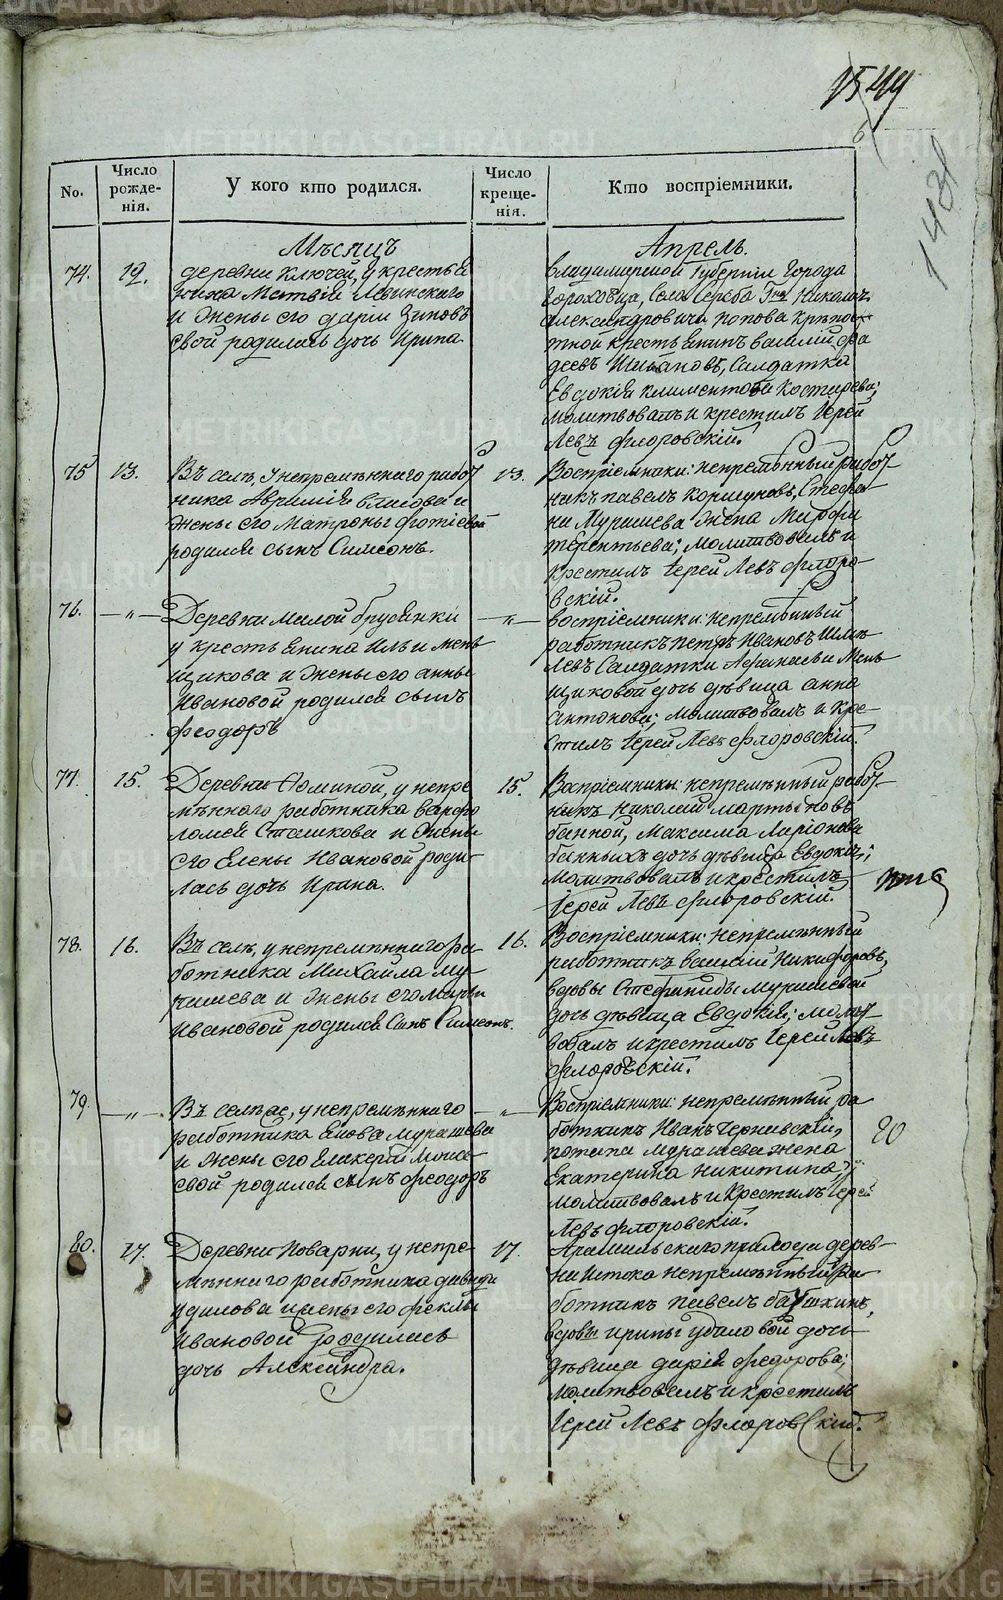 1544
6
1438
No.
Число рожде-нія.
У кого кто родился.
Число креще-нія.
Кто воспріемники.
Мѣсяцъ
Апрель.
74.
12.
деревни Ключей, у крестья
нина Матвія Левинскаго
и жены его дарьи Зиновъ
евой родилась дочь Ирина.
владимирской Губерніи Города
Гороховца, Села Гна Николая
александровича попова крѣпос
тной крестьянинъ василий фа
деевъ Солдатка
Евдокія климентова
молитвовалъ и крестилъ Іерей
Левъ флоровскій.
75
13.
Въ селѣ, у непремѣннаго работ
ника Власова и
жены его Матроны фотіевой
родился сынъ Симеонъ.
13.
Воспріемники: непремѣнный работ
никъ павелъ коршуновъ, Стефа
на Мурашева жена Марфа
терентьева; молитвовалъ и
крестилъ Іерей Левъ флоро
вскій.
76.
— „ —
Деревни малой брусянки
у крестьянина Ильи мень
щикова и жены его анны
Ивановой родился сынъ
феодоръ
— „ —
воспріемники: непремѣнный
работникъ петръ Ивановъ
Солдатки Мень
щиковой дочь дѣвица анна
антонова; молитвовалъ и кре
стилъ Іерей Левъ флоровскій.
77.
15.
Деревни Фоминой, у непре
мѣннаго работника варфо
ломея Сташкова и жены
его Елены Ивановой роди
лась дочь Ирина.
15.
Воспріемники: непремѣнный работ
никъ Николай мартыновъ
банной, Максима Ларіонова
банныхъ дочь дѣвица Евдокія;
молитвовалъ и крестилъ
Іерей Левъ Флоровскій.
78.
16.
Въ селѣ, у непремѣннаго ра
ботника Михайла му
рашева и жены его марьи
Ивановой родился Сынъ Симеонъ.
16.
Воспріемники: непремѣнный
работникъ василій Никифоровъ,
вдовы Стефаниды мурашевой
дочь дѣвица Евдокія; молит
вовалъ и крестилъ Іерей Левъ
флоровскій.
79.
— „ —
Въ селѣ же, у непремѣннаго
работника Іакова мурашева
и жены его Гликеріи Моисе
евой родился сынъ феодоръ
— „ —
Воспріемники: непремѣнный ра
ботникъ Иванъ Чернавскій,
потапа мурашева жена
Екатерина никитина;
молитвовалъ и крестилъ Іерей
Левъ флоровскій.
20
80.
17.
Деревни поварни, у непре
мѣннаго работника давыда
удилова и жены его феклы
Ивановой родилась
дочь Александра.
17.
Арамильскаго прихода дерев
ни Истока непремѣнный ра
ботникъ павелъ батшхинъ,
вдовы ирины удиловой дочь
дѣвица дарія федорова;
молитвовалъ и крестилъ
Іерей Левъ флоровскій.
METRIKI.GASO-URAL.RU